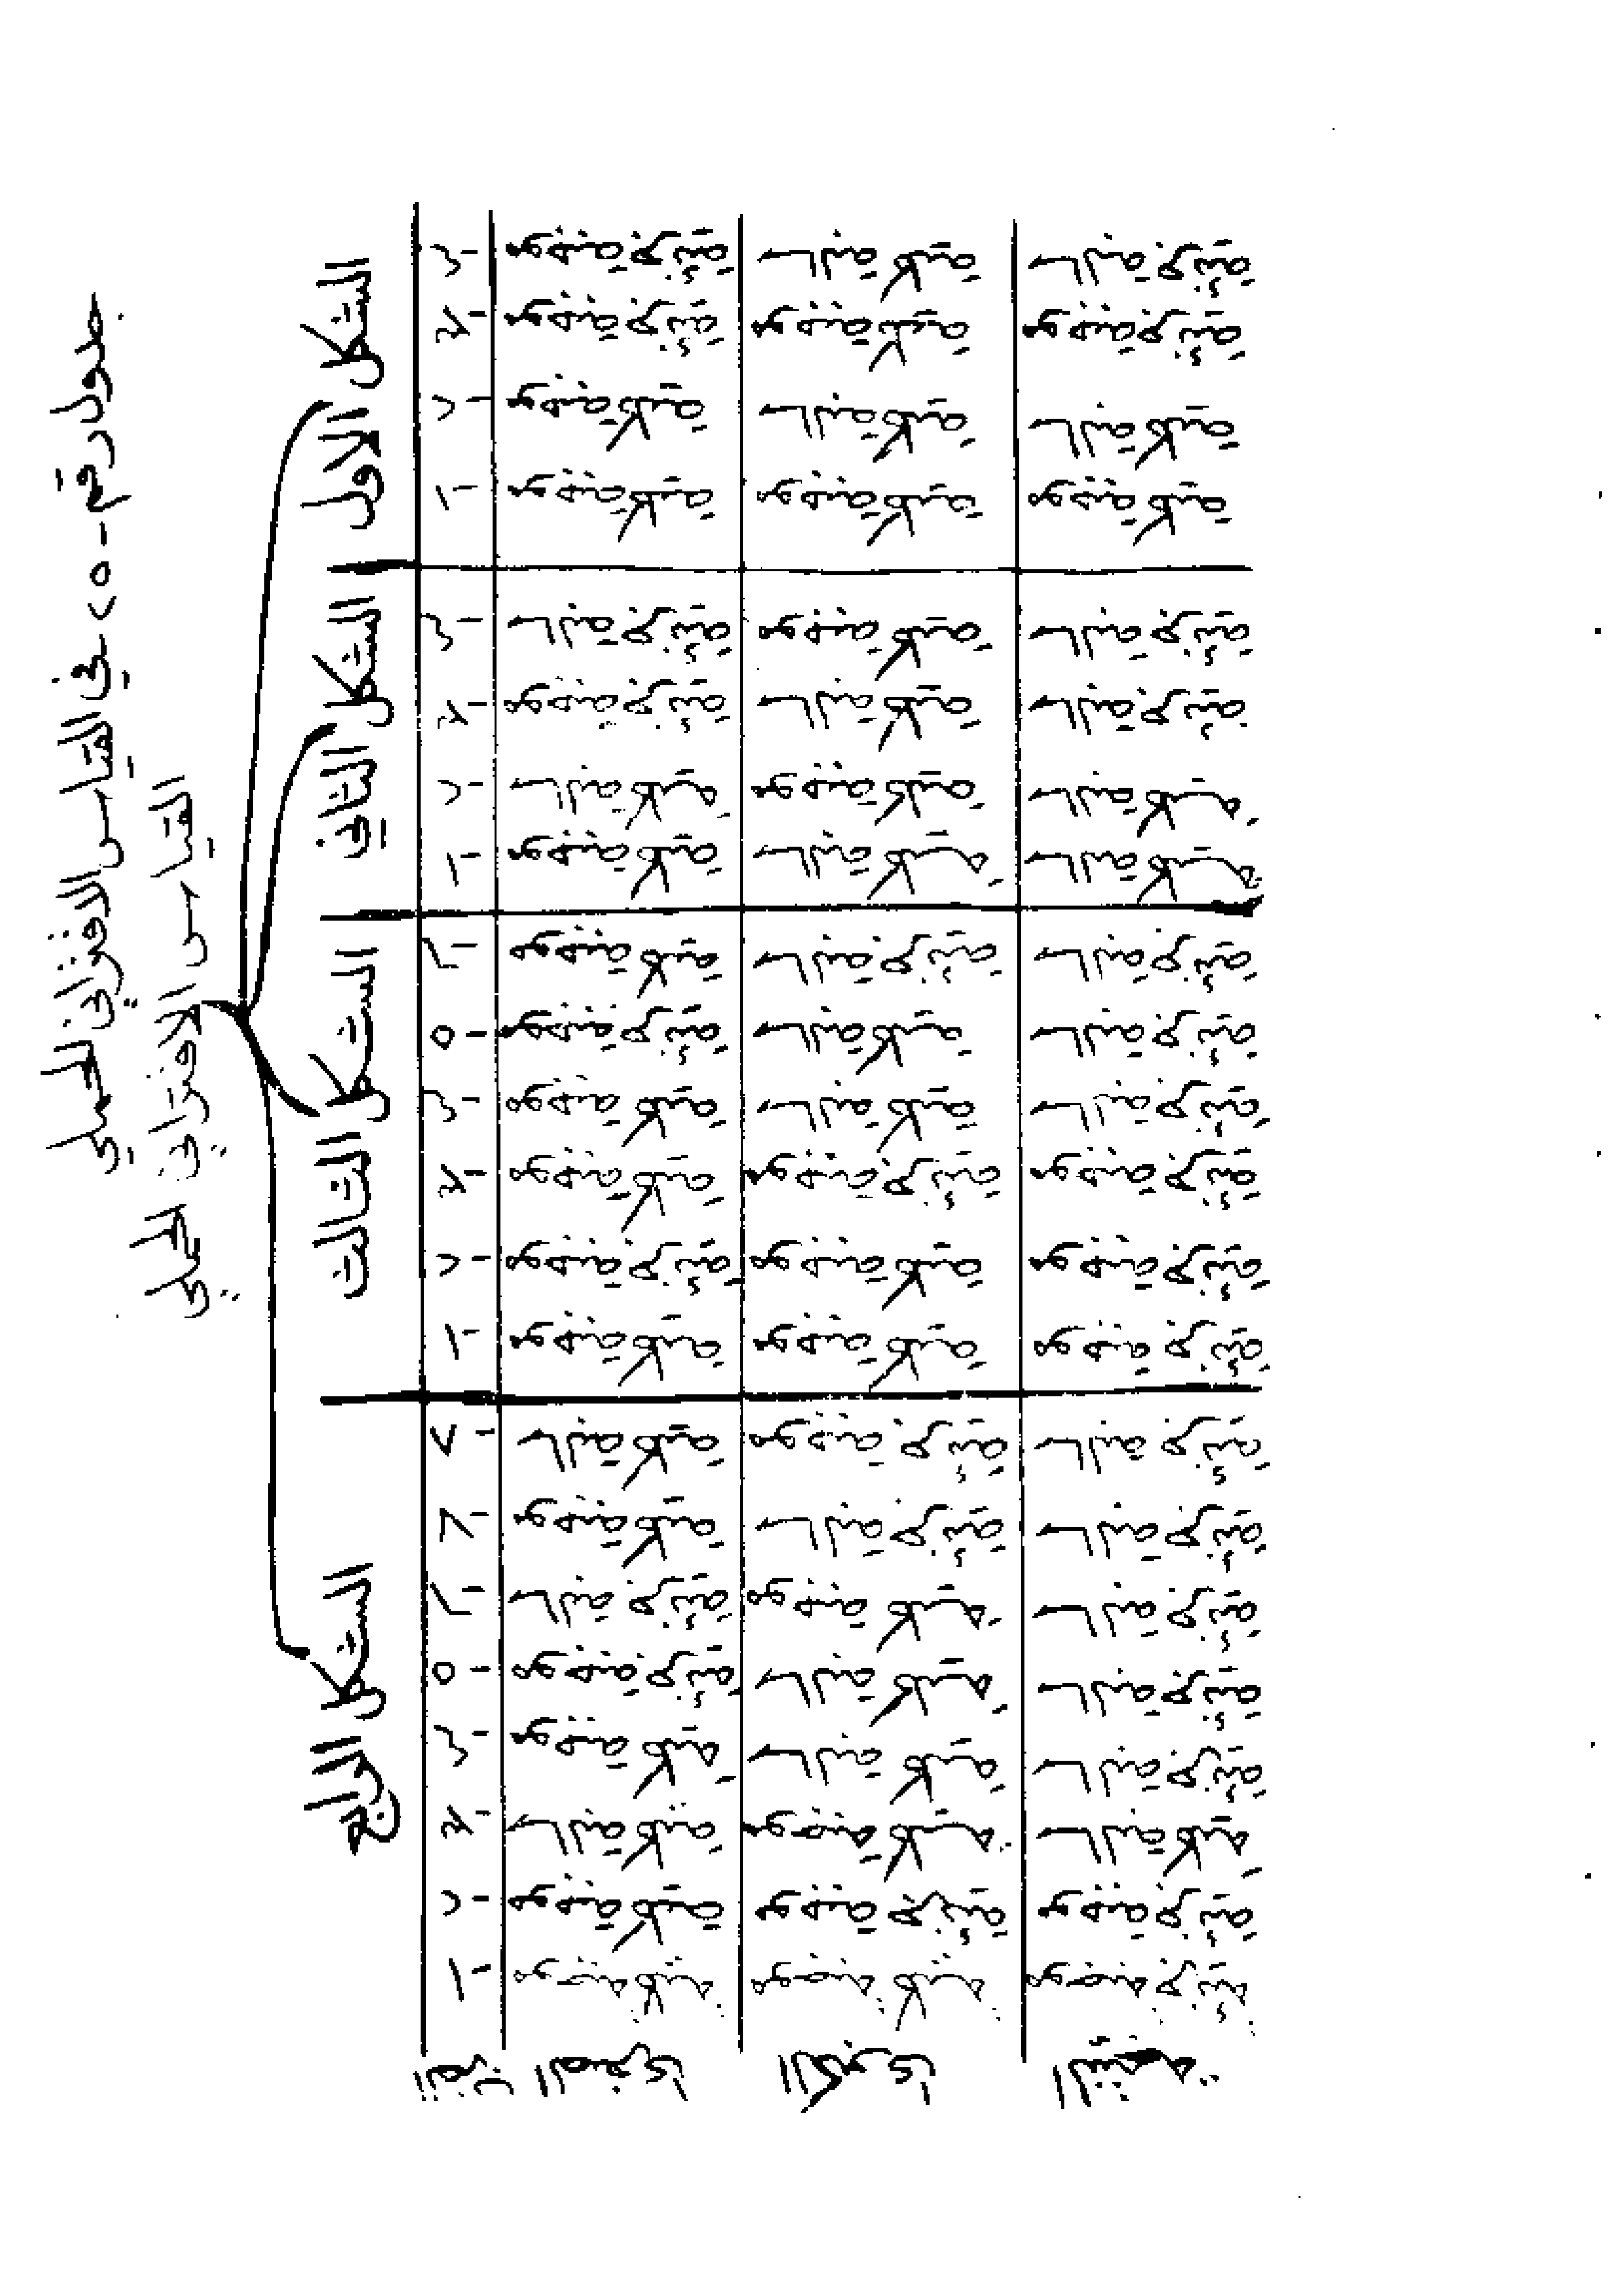 جدول رقم -٢٥- في القياس الاقتراني الحملي
القياس الاقتراني الحملي
الضرب الصغرى الكبرى النتيجة
الشكل الاول
١- موجبة كلية موجبة كلية موجبة كلية
٢- موجبة كلية سالبة كلية سالبة كلية
٣- موجبة جزئية موجبة كلية موجبة جزئية
٤- موجبة جزئية سالبة كلية سالبة جزئية
الشكل الثاني
١- موجبة كلية سالبة كلية سالبة كلية
٢- سالبة كلية موجبة كلية سالبة كلية
٣- موجبة جزئية سالبة كلية سالبة جزئية
٤- سالبة جزئية موجبة كلية سالبة جزئية
الشكل الثالث
١- موجبة كلية موجبة كلية موجبة جزئية
٢- موجبة جزئية موجبة كلية موجبة جزئية
٣- موجبة كلية موجبة جزئية موجبة جزئية
٤- موجبة كلية سالبة كلية سالبة جزئية
٥- موجبة جزئية سالبة كلية سالبة جزئية
٦- موجبة كلية سالبة جزئية سالبة جزئية
الشكل الرابع
١- موجبة كلية موجبة كلية موجبة جزئية
٢- موجبة كلية موجبة جزئية موجبة جزئية
٣- سالبة كلية موجبة كلية سالبة كلية
٤- موجبة كلية سالبة كلية سالبة جزئية
٥- موجبة جزئية سالبة كلية سالبة جزئية
٦- سالبة جزئية موجبة كلية سالبة جزئية
٧- موجبة كلية سالبة جزئية سالبة جزئية
٨- سالبة كلية موجبة جزئية سالبة جزئية